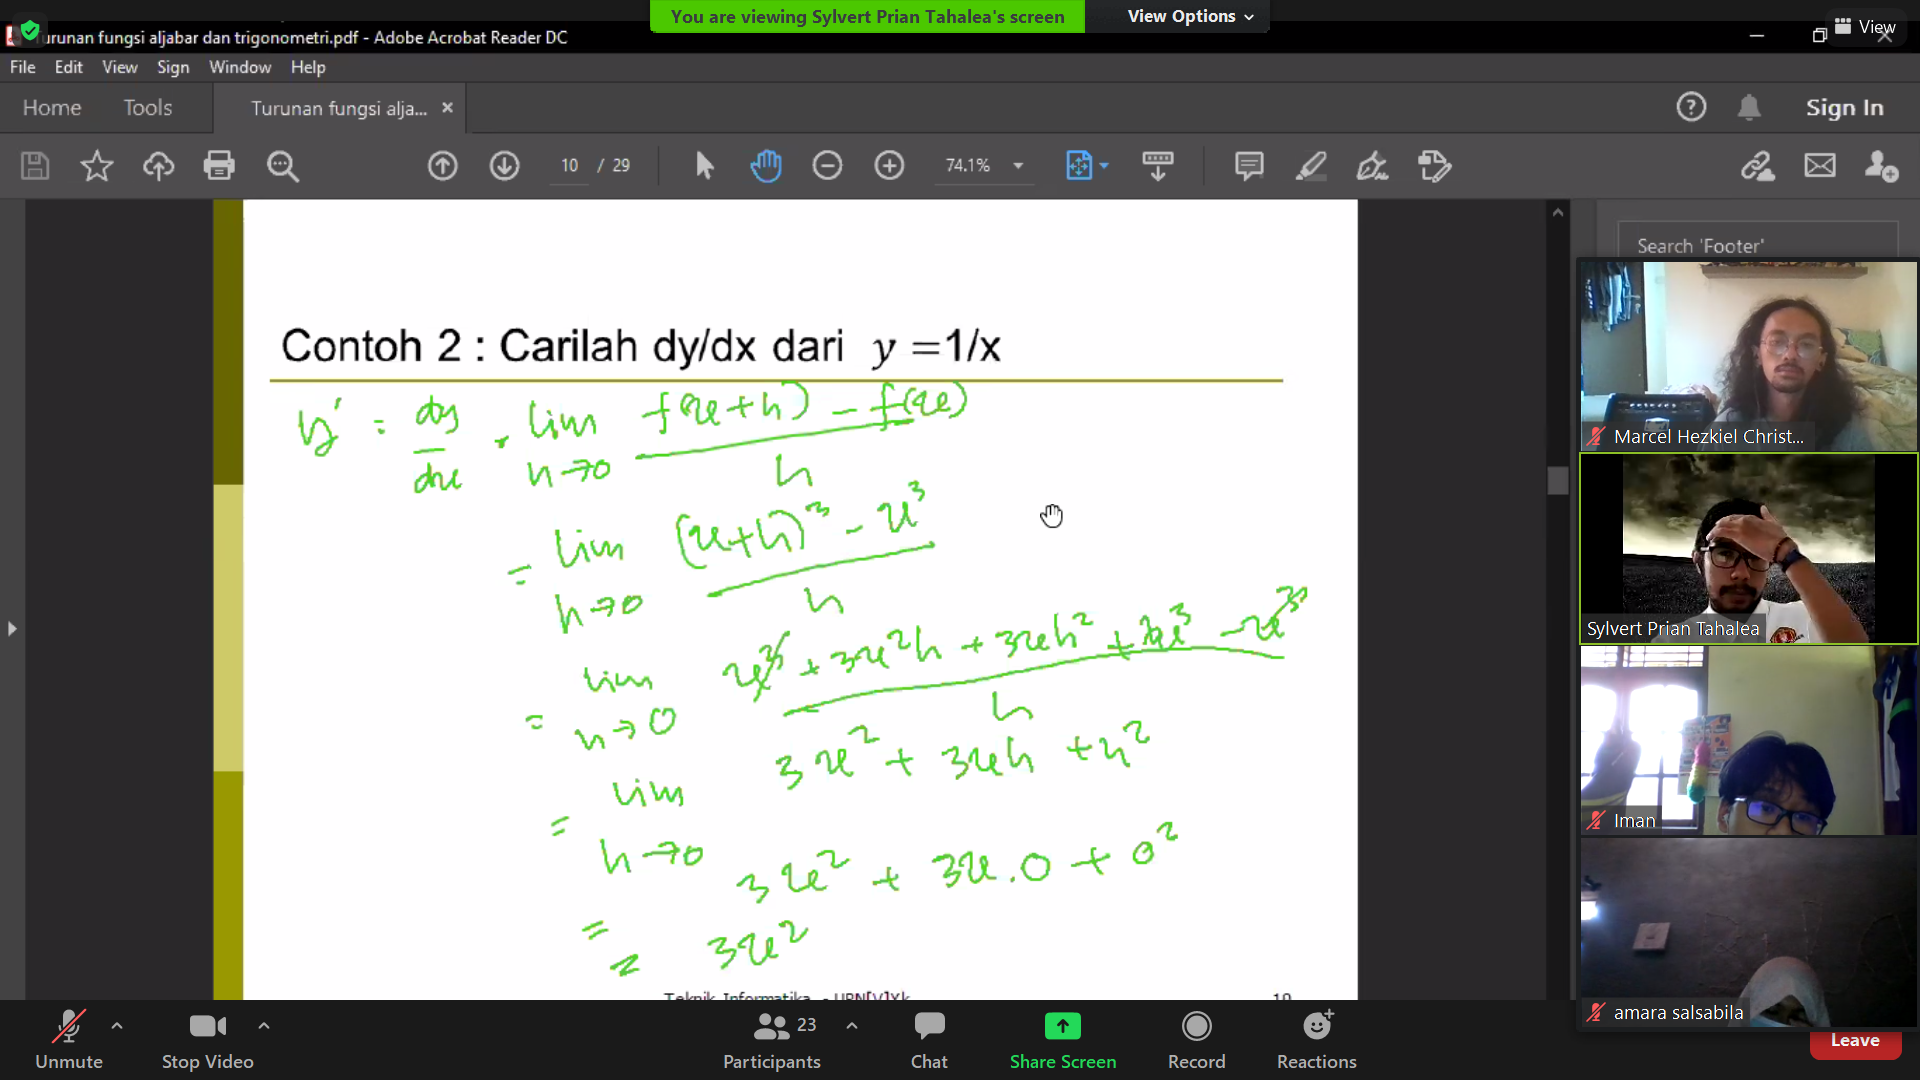 You are viewing Sylvert Prian Tahalea's screen
View Options
View
Turunan fungsi aljabar dan trigonometri.pdf - Adobe Acrobat Reader DC
File Edit View Sign Window Help
Home Tools Turunan fungsi alja... ×
Sign In
10 / 29
74.1%
Search 'Footer'
Contoh 2 : Carilah dy/dx dari y =1/x
y' = dy/dx = lim h→0 f(x+h) - f(x) / h
= lim h→0 (x+h)³ - x³ / h
= lim h→0 x³ + 3x²h + 3xh² + - x³ / h
= lim h→0 3x² + 3xh + h²
= 3x² + 3x.0 + 0²
= 3x²
Teknik Informatika - UPN[V]Yk
10
Marcel Hezkiel Christ...
Sylvert Prian Tahalea
Iman
amara salsabila
Unmute
Stop Video
23
Participants
Chat
Share Screen
Record
Reactions
Leave